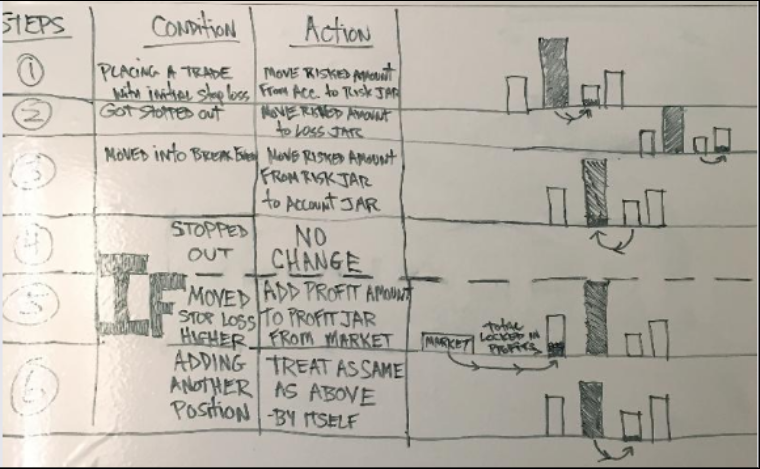 STEPS CONDITION ACTION
1 PLACING A TRADE MOVE RISKED AMOUNT
with initial stop loss FROM ACC. to RISK JAR
2 GOT STOPPED OUT MOVE RISKED AMOUNT
to LOSS JAR
3 MOVED into BREAK EVEN MOVE RISKED AMOUNT
FROM RISK JAR
to ACCOUNT JAR
4 STOPPED NO
OUT CHANGE
IF
5 MOVED ADD PROFIT AMOUNT
STOP LOSS TO PROFIT JAR
HIGHER FROM MARKET
MARKET
TOTAL
LOCKED IN
PROFITS
6 ADDING TREAT AS SAME
ANOTHER AS ABOVE
POSITION -BY ITSELF